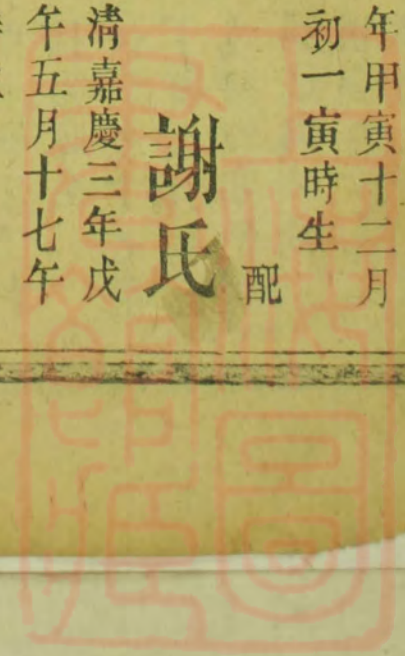 年甲寅十二月
初一寅時生
配
謝氏
清嘉慶三年戊
午五月十七午